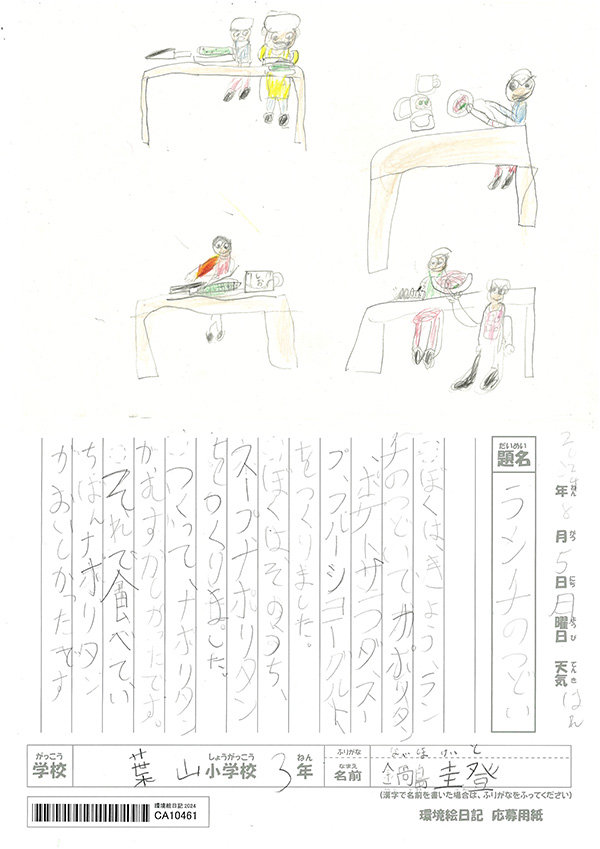 しお
2024年ねん8月がつ5日にち月曜日ようび 天気てんき はれ
だいめい
題名 ランチのつどい
ぼくは、きょう、ラン
チのつどいで、ナポリタン
、ポテトサラダ、スー
プ、フルーツヨーグルト
をつくりました。
ぼくはそのうち、
スープ、ナポリタン
をつくりました。
つくって、ナポリタン
がむずかしかったです。
それで食べてい
ちばんナポリタン
がおいしかったです
がっこう しょうがっこう ねん ふりがな けいと
学校 葉山小学校 3年 なまえ 名前 鍋島 圭登
(漢字で名前を書いた場合は、ふりがなをふってください)
環境絵日記2024
CA10461
環境絵日記 応募用紙